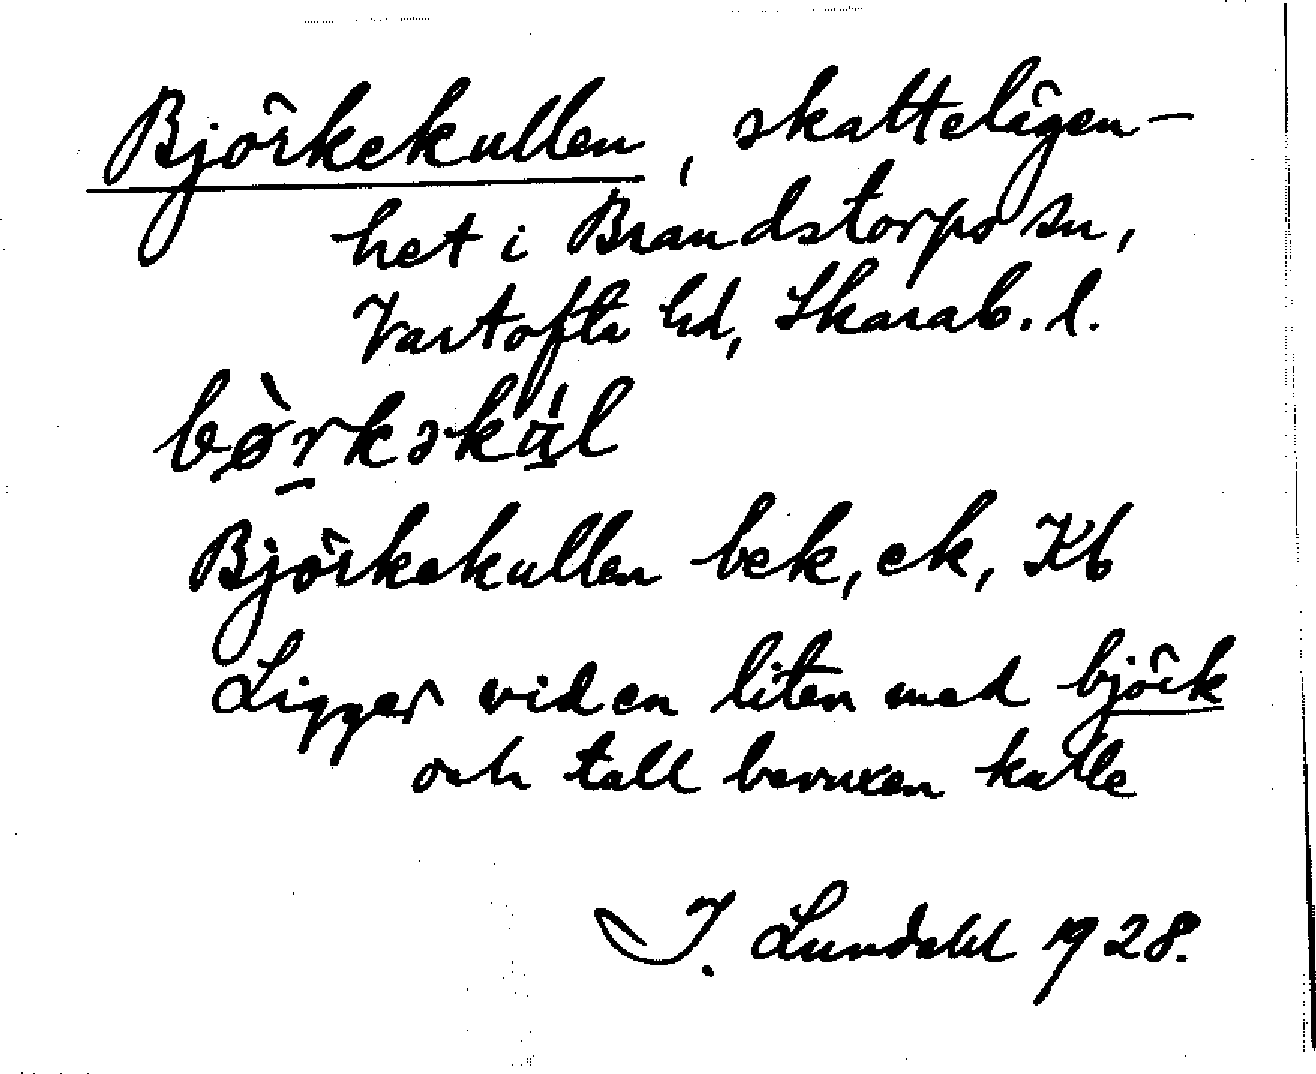 Björkekullen, skattelägen-
het i Brandstorps sn,
Vartofta hd, Skarab. l.
bø̀rkəkúl
Björkekullen bek, ek, Kb
Ligger vid en liten med björk
och tall bevuxen kulle
I. Lundahl 1928.